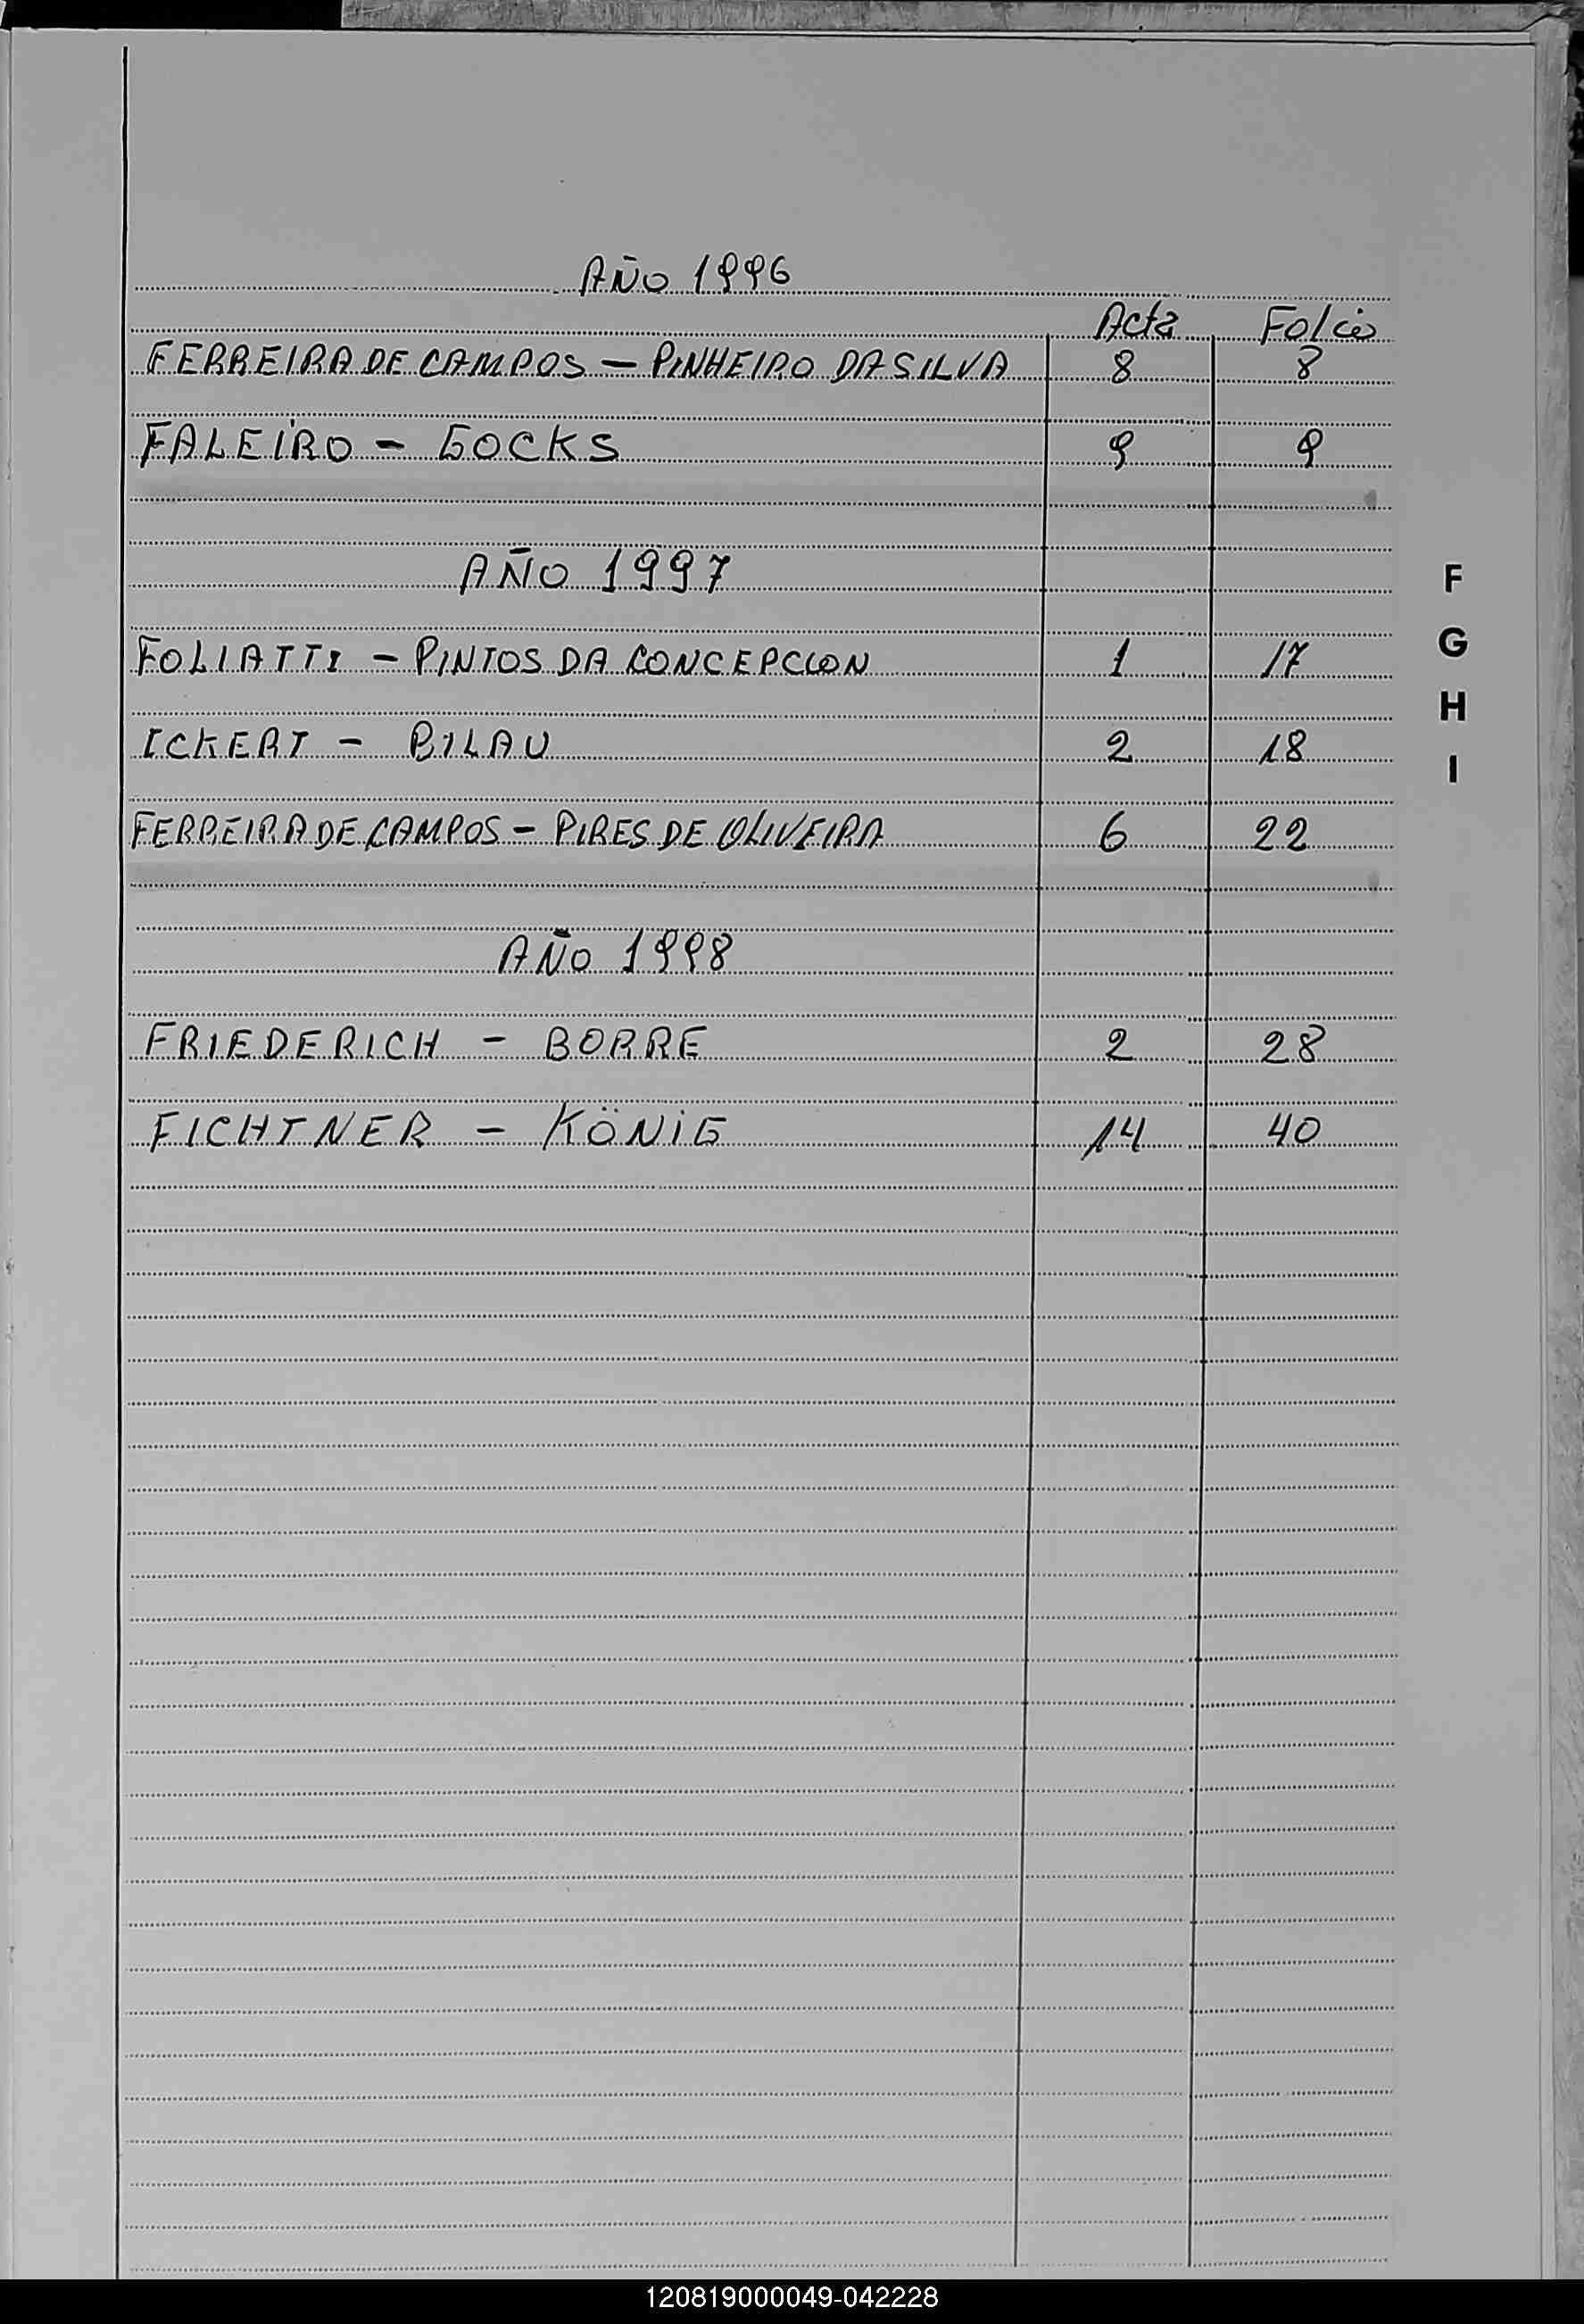 AÑO 1996
Acta Folio
FERREIRA DE CAMPOS - PINHEIRO DA SILVA 8 8
FALEIRO - GOCKS 9 9
AÑO 1997
FOLIATTI - PINTOS DA CONCEPCION 1 17
ICKERT - BILAU 2 18
FERREIRA DE CAMPOS - PIRES DE OLIVEIRA 6 22
AÑO 1998
FRIEDERICH - BORRE 2 28
FICHTNER - KÖNIG 14 40
F
G
H
I
120819000049-042228